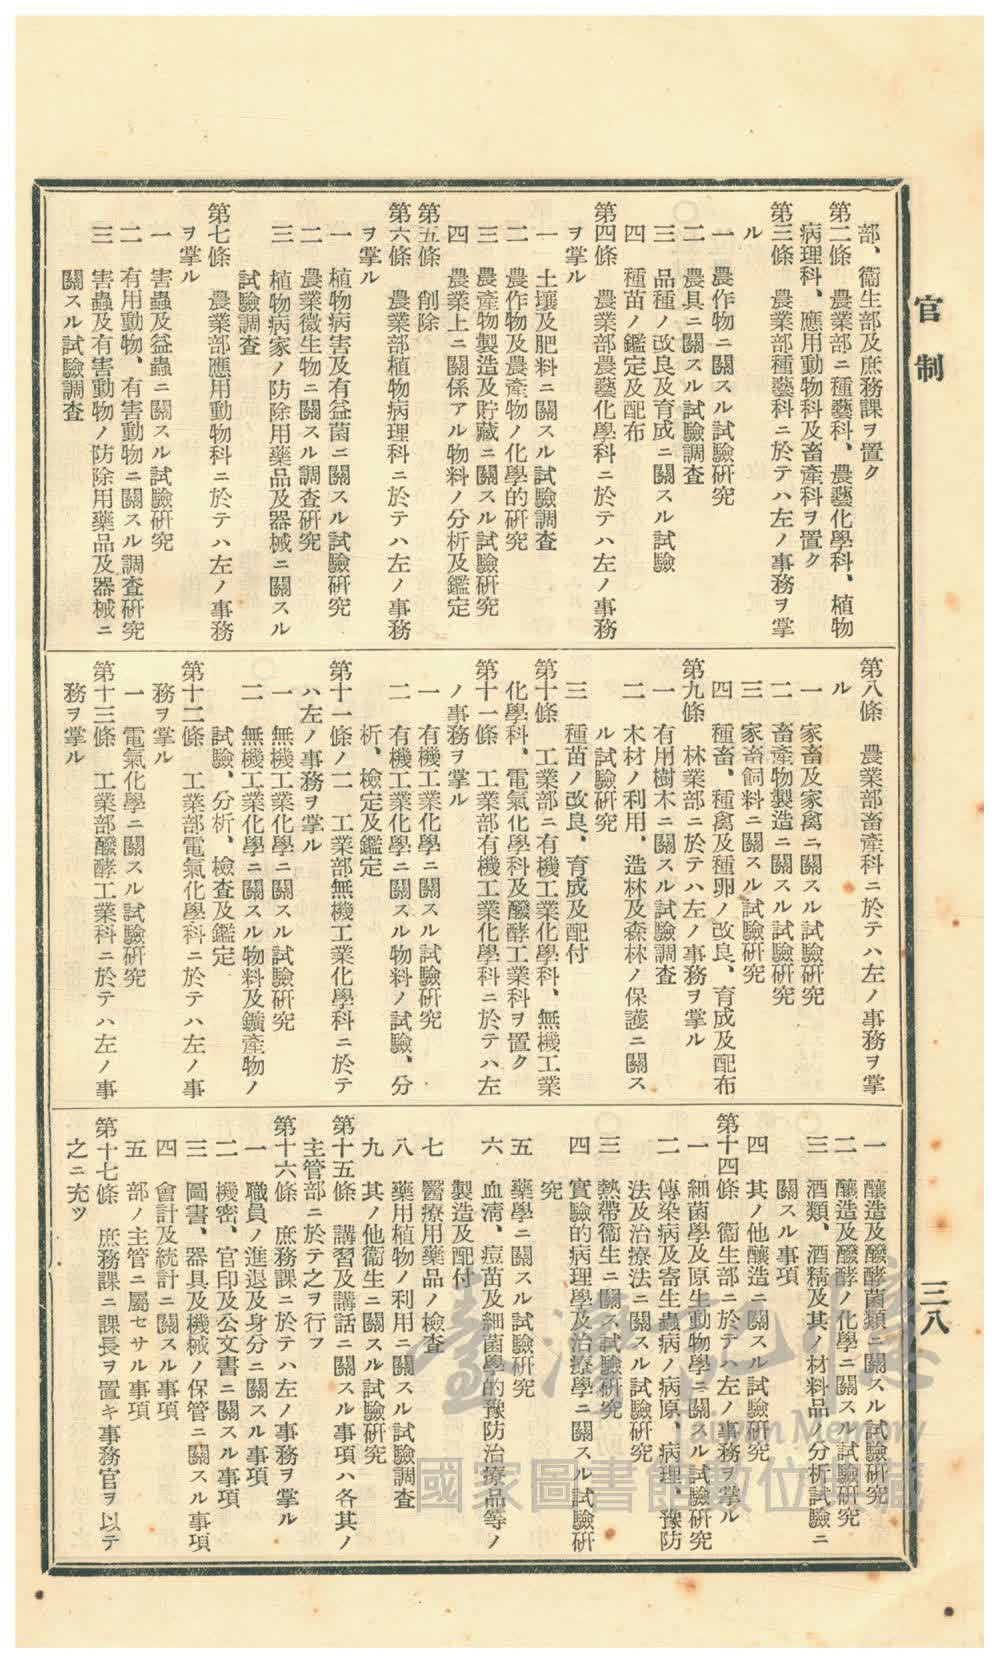 官制
三八
部、衞生部及庶務課ヲ置ク
第二條 農業部ニ種藝科、農藝化學科、植物
病理科、應用動物科及畜產科ヲ置ク
第三條 農業部種藝科ニ於テハ左ノ事務ヲ掌
ル
一 農作物ニ關スル試驗硏究
二 農具ニ關スル試驗調查
三 品種ノ改良及育成ニ關スル試驗
四 種苗ノ鑑定及配布
第四條 農業部農藝化學科ニ於テハ左ノ事務
ヲ掌ル
一 土壤及肥料ニ關スル試驗調查
二 農作物及農產物ノ化學的硏究
三 農產物製造及貯藏ニ關スル試驗硏究
四 農業上ニ關係アル物料ノ分析及鑑定
第五條 削除
第六條 農業部植物病理科ニ於テハ左ノ事務
ヲ掌ル
一 植物病害及有益菌ニ關スル試驗硏究
二 農業微生物ニ關スル調查硏究
三 植物病家ノ防除用藥品及器械ニ關スル
試驗調查
第七條 農業部應用動物科ニ於テハ左ノ事務
ヲ掌ル
一 害蟲及益蟲ニ關スル試驗硏究
二 有用動物、有害動物ニ關スル調查硏究
三 害蟲及有害動物ノ防除用藥品及器械ニ
關スル試驗調查
第八條 農業部畜產科ニ於テハ左ノ事務ヲ掌
ル
一 家畜及家禽ニ關スル試驗硏究
二 畜產物製造ニ關スル試驗硏究
三 家畜飼料ニ關スル試驗硏究
四 種畜、種禽及種卵ノ改良、育成及配布
第九條 林業部ニ於テハ左ノ事務ヲ掌ル
一 有用樹木ニ關スル試驗調查
二 木材ノ利用、造林及森林ノ保護ニ關ス
ル試驗硏究
三 種苗ノ改良、育成及配付
第十條 工業部ニ有機工業化學科、無機工業
化學科、電氣化學科及醱酵工業科ヲ置ク
第十一條 工業部有機工業化學科ニ於テハ左
ノ事務ヲ掌ル
一 有機工業化學ニ關スル試驗硏究
二 有機工業化學ニ關スル物料ノ試驗、分
析、檢定及鑑定
第十一條ノ二 工業部無機工業化學科ニ於テ
ハ左ノ事務ヲ掌ル
一 無機工業化學ニ關スル試驗硏究
二 無機工業化學ニ關スル物料及鑛產物ノ
試驗、分析、檢查及鑑定
第十二條 工業部電氣化學科ニ於テハ左ノ事
務ヲ掌ル
一 電氣化學ニ關スル試驗硏究
第十三條 工業部醱酵工業科ニ於テハ左ノ事
務ヲ掌ル
一 釀造及醱酵菌類ニ關スル試驗硏究
二 釀造及醱酵ノ化學ニ關スル試驗硏究
三 酒類、酒精及其ノ材料品ノ分析試驗ニ
關スル事項
四 其ノ他釀造ニ關スル試驗硏究
第十四條 衞生部ニ於テハ左ノ事務ヲ掌ル
一 細菌學及原生動物學ニ關スル試驗硏究
二 傳染病及寄生蟲病ノ病原、病理、豫防
法及治療法ニ關スル試驗硏究
三 熱帶衞生ニ關スル試驗硏究
四 實驗的病理學及治療學ニ關スル試驗硏
究
五 藥學ニ關スル試驗硏究
六 血淸、痘苗及細菌學的豫防治療品等ノ
製造及配付
七 醫療用藥品ノ檢查
八 藥用植物ノ利用ニ關スル試驗調查
九 其ノ他衞生ニ關スル試驗硏究
第十五條 講習及講話ニ關スル事項ハ各其ノ
主管部ニ於テ之ヲ行フ
第十六條 庶務課ニ於テハ左ノ事務ヲ掌ル
一 職員ノ進退及身分ニ關スル事項
二 機密、官印及公文書ニ關スル事項
三 圖書、器具及機械ノ保管ニ關スル事項
四 會計及統計ニ關スル事項
五 部ノ主管ニ屬セサル事項
第十七條 庶務課ニ課長ヲ置キ事務官ヲ以テ
之ニ充ツ
臺灣記憶
Taiwan Memory
國家圖書館數位典藏